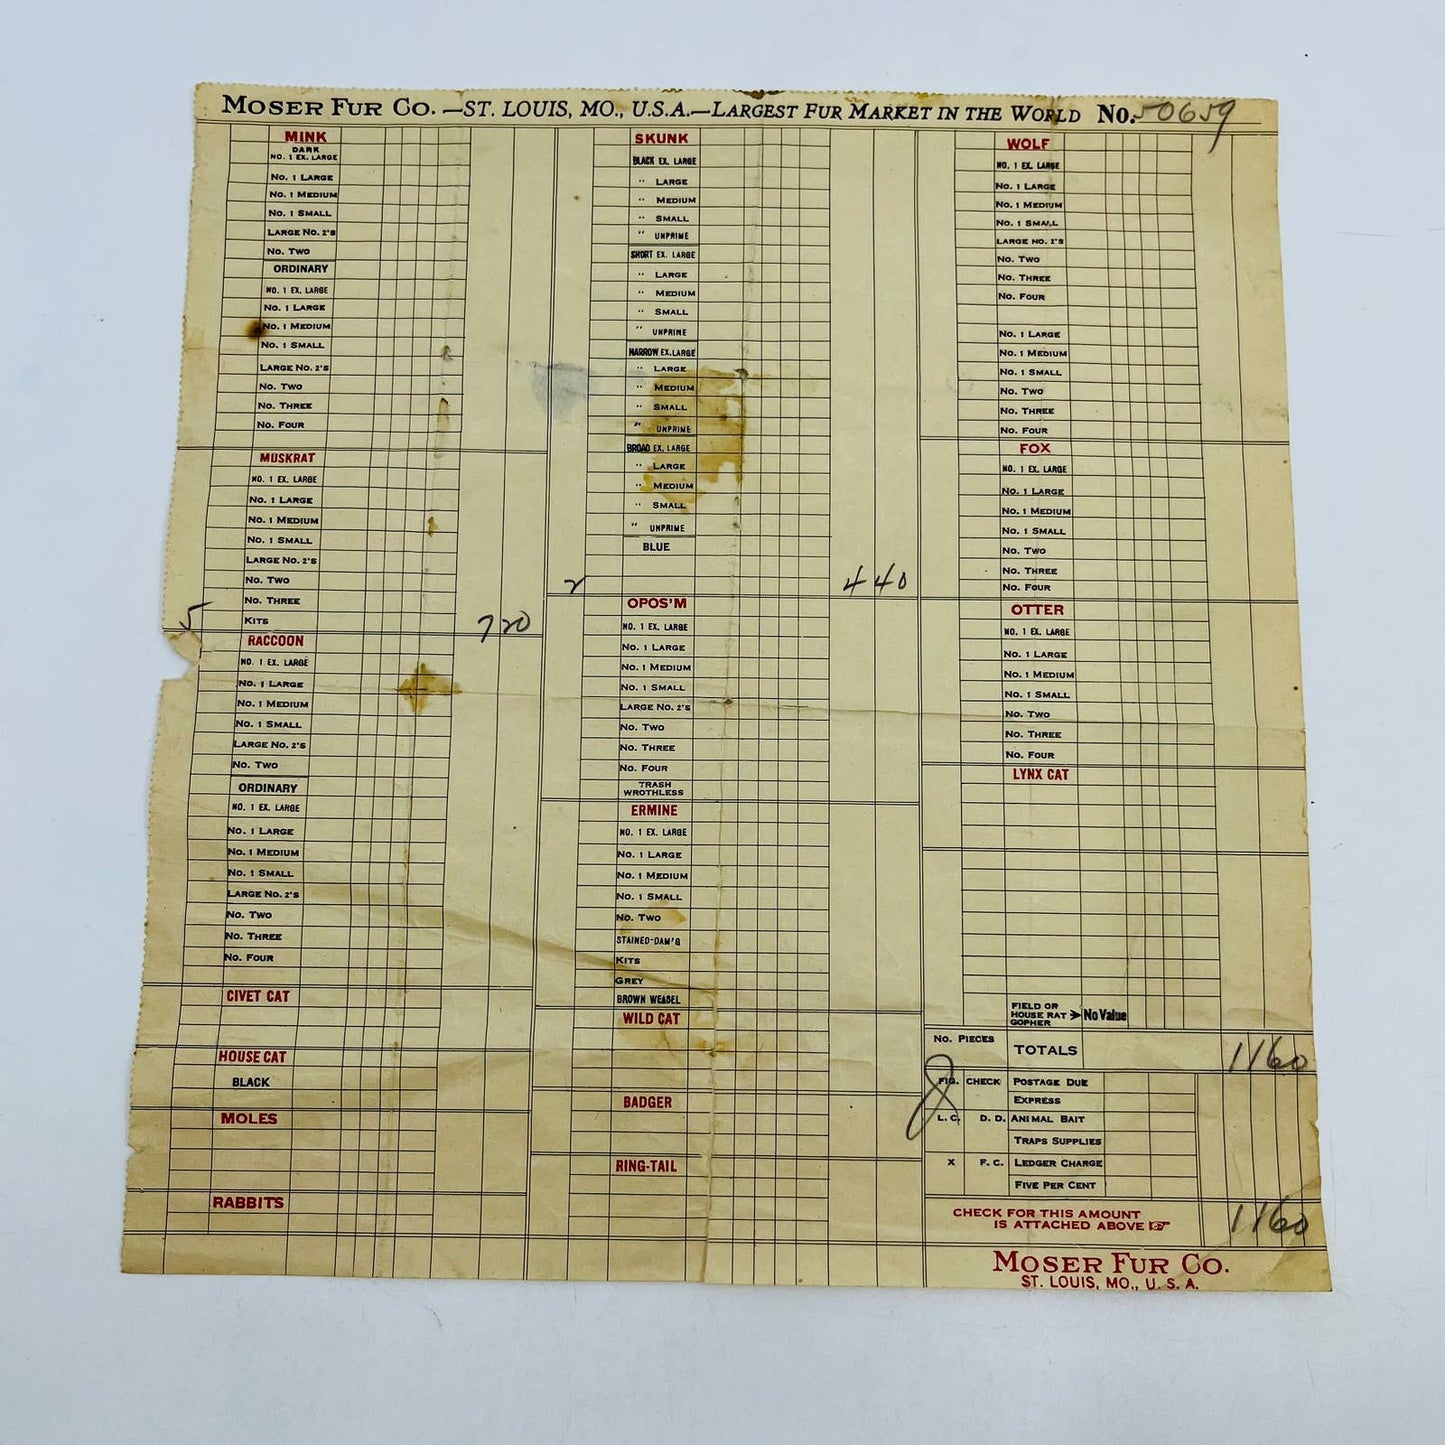 MOSER FUR CO.—ST. LOUIS, MO., U.S.A.—LARGEST FUR MARKET IN THE WORLD No. 50659
MINK
DARK
NO. 1 EX. LARGE
No. 1 LARGE
No. 1 MEDIUM
No. 1 SMALL
LARGE No. 2'S
No. TWO
ORDINARY
NO. 1 EX. LARGE
No. 1 LARGE
No. 1 MEDIUM
No. 1 SMALL
LARGE No. 2'S
No. TWO
No. THREE
No. FOUR
MUSKRAT
NO. 1 EX. LARGE
No. 1 LARGE
No. 1 MEDIUM
No. 1 SMALL
LARGE No. 2'S
No. TWO
No. THREE
5 KITS 720
RACCOON
NO. 1 EX. LARGE
No. 1 LARGE
No. 1 MEDIUM
No. 1 SMALL
LARGE No. 2'S
No. TWO
ORDINARY
NO. 1 EX. LARGE
No. 1 LARGE
No. 1 MEDIUM
No. 1 SMALL
LARGE No. 2'S
No. TWO
No. THREE
No. FOUR
CIVET CAT
HOUSE CAT
BLACK
MOLES
RABBITS
SKUNK
BLACK EX. LARGE
" LARGE
" MEDIUM
" SMALL
" UNPRIME
SHORT EX. LARGE
" LARGE
" MEDIUM
" SMALL
" UNPRIME
NARROW EX. LARGE
" LARGE
" MEDIUM
" SMALL
" UNPRIME
BROAD EX. LARGE
" LARGE
" MEDIUM
" SMALL
" UNPRIME
BLUE
2 440
OPOS'M
NO. 1 EX. LARGE
No. 1 LARGE
No. 1 MEDIUM
No. 1 SMALL
LARGE No. 2'S
No. TWO
No. THREE
No. FOUR
TRASH
WROTHLESS
ERMINE
NO. 1 EX. LARGE
No. 1 LARGE
No. 1 MEDIUM
No. 1 SMALL
No. TWO
STAINED-DAM'G
KITS
GREY
BROWN WEASEL
WILD CAT
BADGER
RING-TAIL
WOLF
NO. 1 EX. LARGE
No. 1 LARGE
No. 1 MEDIUM
No. 1 SMALL
LARGE No. 2'S
No. TWO
No. THREE
No. FOUR
No. 1 LARGE
No. 1 MEDIUM
No. 1 SMALL
No. TWO
No. THREE
No. FOUR
FOX
NO. 1 EX. LARGE
No. 1 LARGE
No. 1 MEDIUM
No. 1 SMALL
No. TWO
No. THREE
No. FOUR
OTTER
NO. 1 EX. LARGE
No. 1 LARGE
No. 1 MEDIUM
No. 1 SMALL
No. TWO
No. THREE
No. FOUR
LYNX CAT
FIELD OR
HOUSE RAT No Value
GOPHER
No. PIECES TOTALS 1160
8
FIG. CHECK POSTAGE DUE
EXPRESS
L. C. D. D. ANIMAL BAIT
TRAPS SUPPLIES
X F. C. LEDGER CHARGE
FIVE PER CENT
CHECK FOR THIS AMOUNT
IS ATTACHED ABOVE ☞ 1160
MOSER FUR CO.
ST. LOUIS, MO., U. S. A.